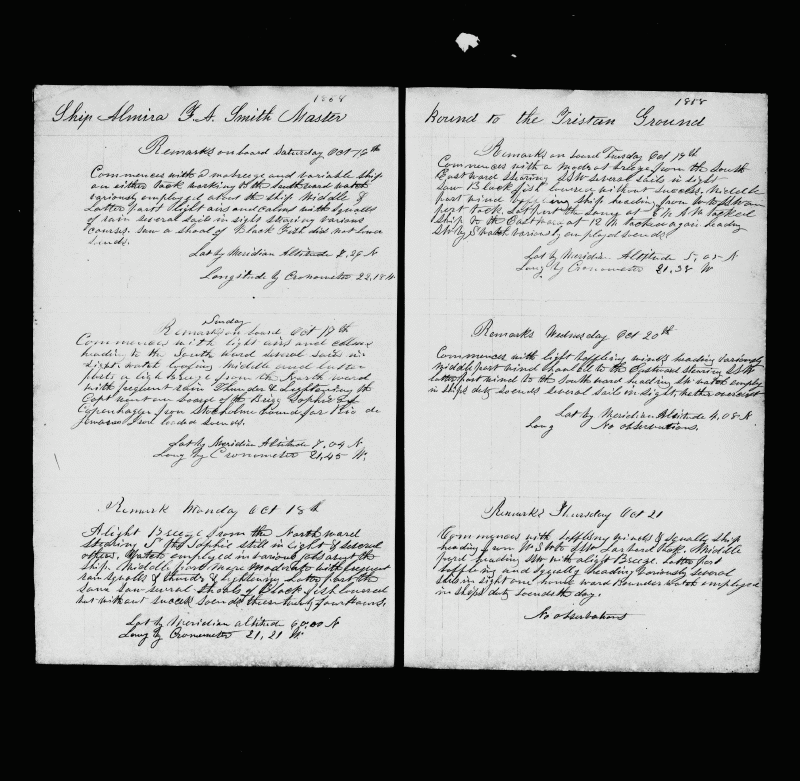 1858
Ship Almira F. A. Smith Master
Remarks on board Saturday Oct 16th
Commences with a breeze and variable ship
on either tack working to the southward watch
variously employed about the ship Middle &
Latter part light airs and calms with squalls
of rain several sails in sight steering various
courses. Saw a shoal of Black Fish did not lower
Lat by Meridian Altitude 7.36 N
Longitude by Cronometer 22.18 W
Sunday
Remarks on board Oct 17th
Commences with light airs and calms
heading to the South ward several sails in
sight watch Middle and latter
part a light breeze from the North ward
with frequent rain Thunder & Lightening the
Capt went on board of the Brig Sophie of
Copenhagen from Stockholm bound for Rio de
Iron loaded
Lat by Meridian Altitude 7.04 N
Long by Cronometer 21.45 W.
Remark Monday Oct 18th
A light Breeze from the North ward
stearing the Sophie still in sight & several
others, Watch employed in various jobs about the
ship. Middle part more moderate with frequent
rain squalls & thunder & lightening Latter part the
same saw several shoals of Black fish lowered
but without success twenty four hours.
Lat by Meridian altitude 6,00 N
Long by Cronometer 21,21 W
1858
Bound to the Tristan Ground
Remarks on board Tuesday Oct 19th
Commences with a moderat breeze from the South
East ward stearing SSW several sails in sight
saw Black fish lowered without success, Middle
part wind ship heading from W to SW on
port tack. Latter part the same at 6 h A M tacked
ship to the Eastward at 12 M tacked again heading
SW by S watch variously employed
Lat by Meridian Altitude 5,05 N
Long by Cronometer 21.38 W
Remarks Wednesday Oct 20th
Commences with light baffling winds heading variously
Middle part wind to the Eastward stearing SSW
latter part wind to the South ward heading SW watch employ
in ships duty several sails in sight, wether overcast
Lat by Meridian Altitude 4.08 N
Long No observations.
Remarks Thursday Oct 21
Commences with baffling winds & squally ship
heading from W S W to SSW Larboard tack. Middle
part heading SW with a light Breeze. Latter part
baffling and squally heading variously several
sails in sight one home ward bounder watch employed
in ships duty day.
No observations